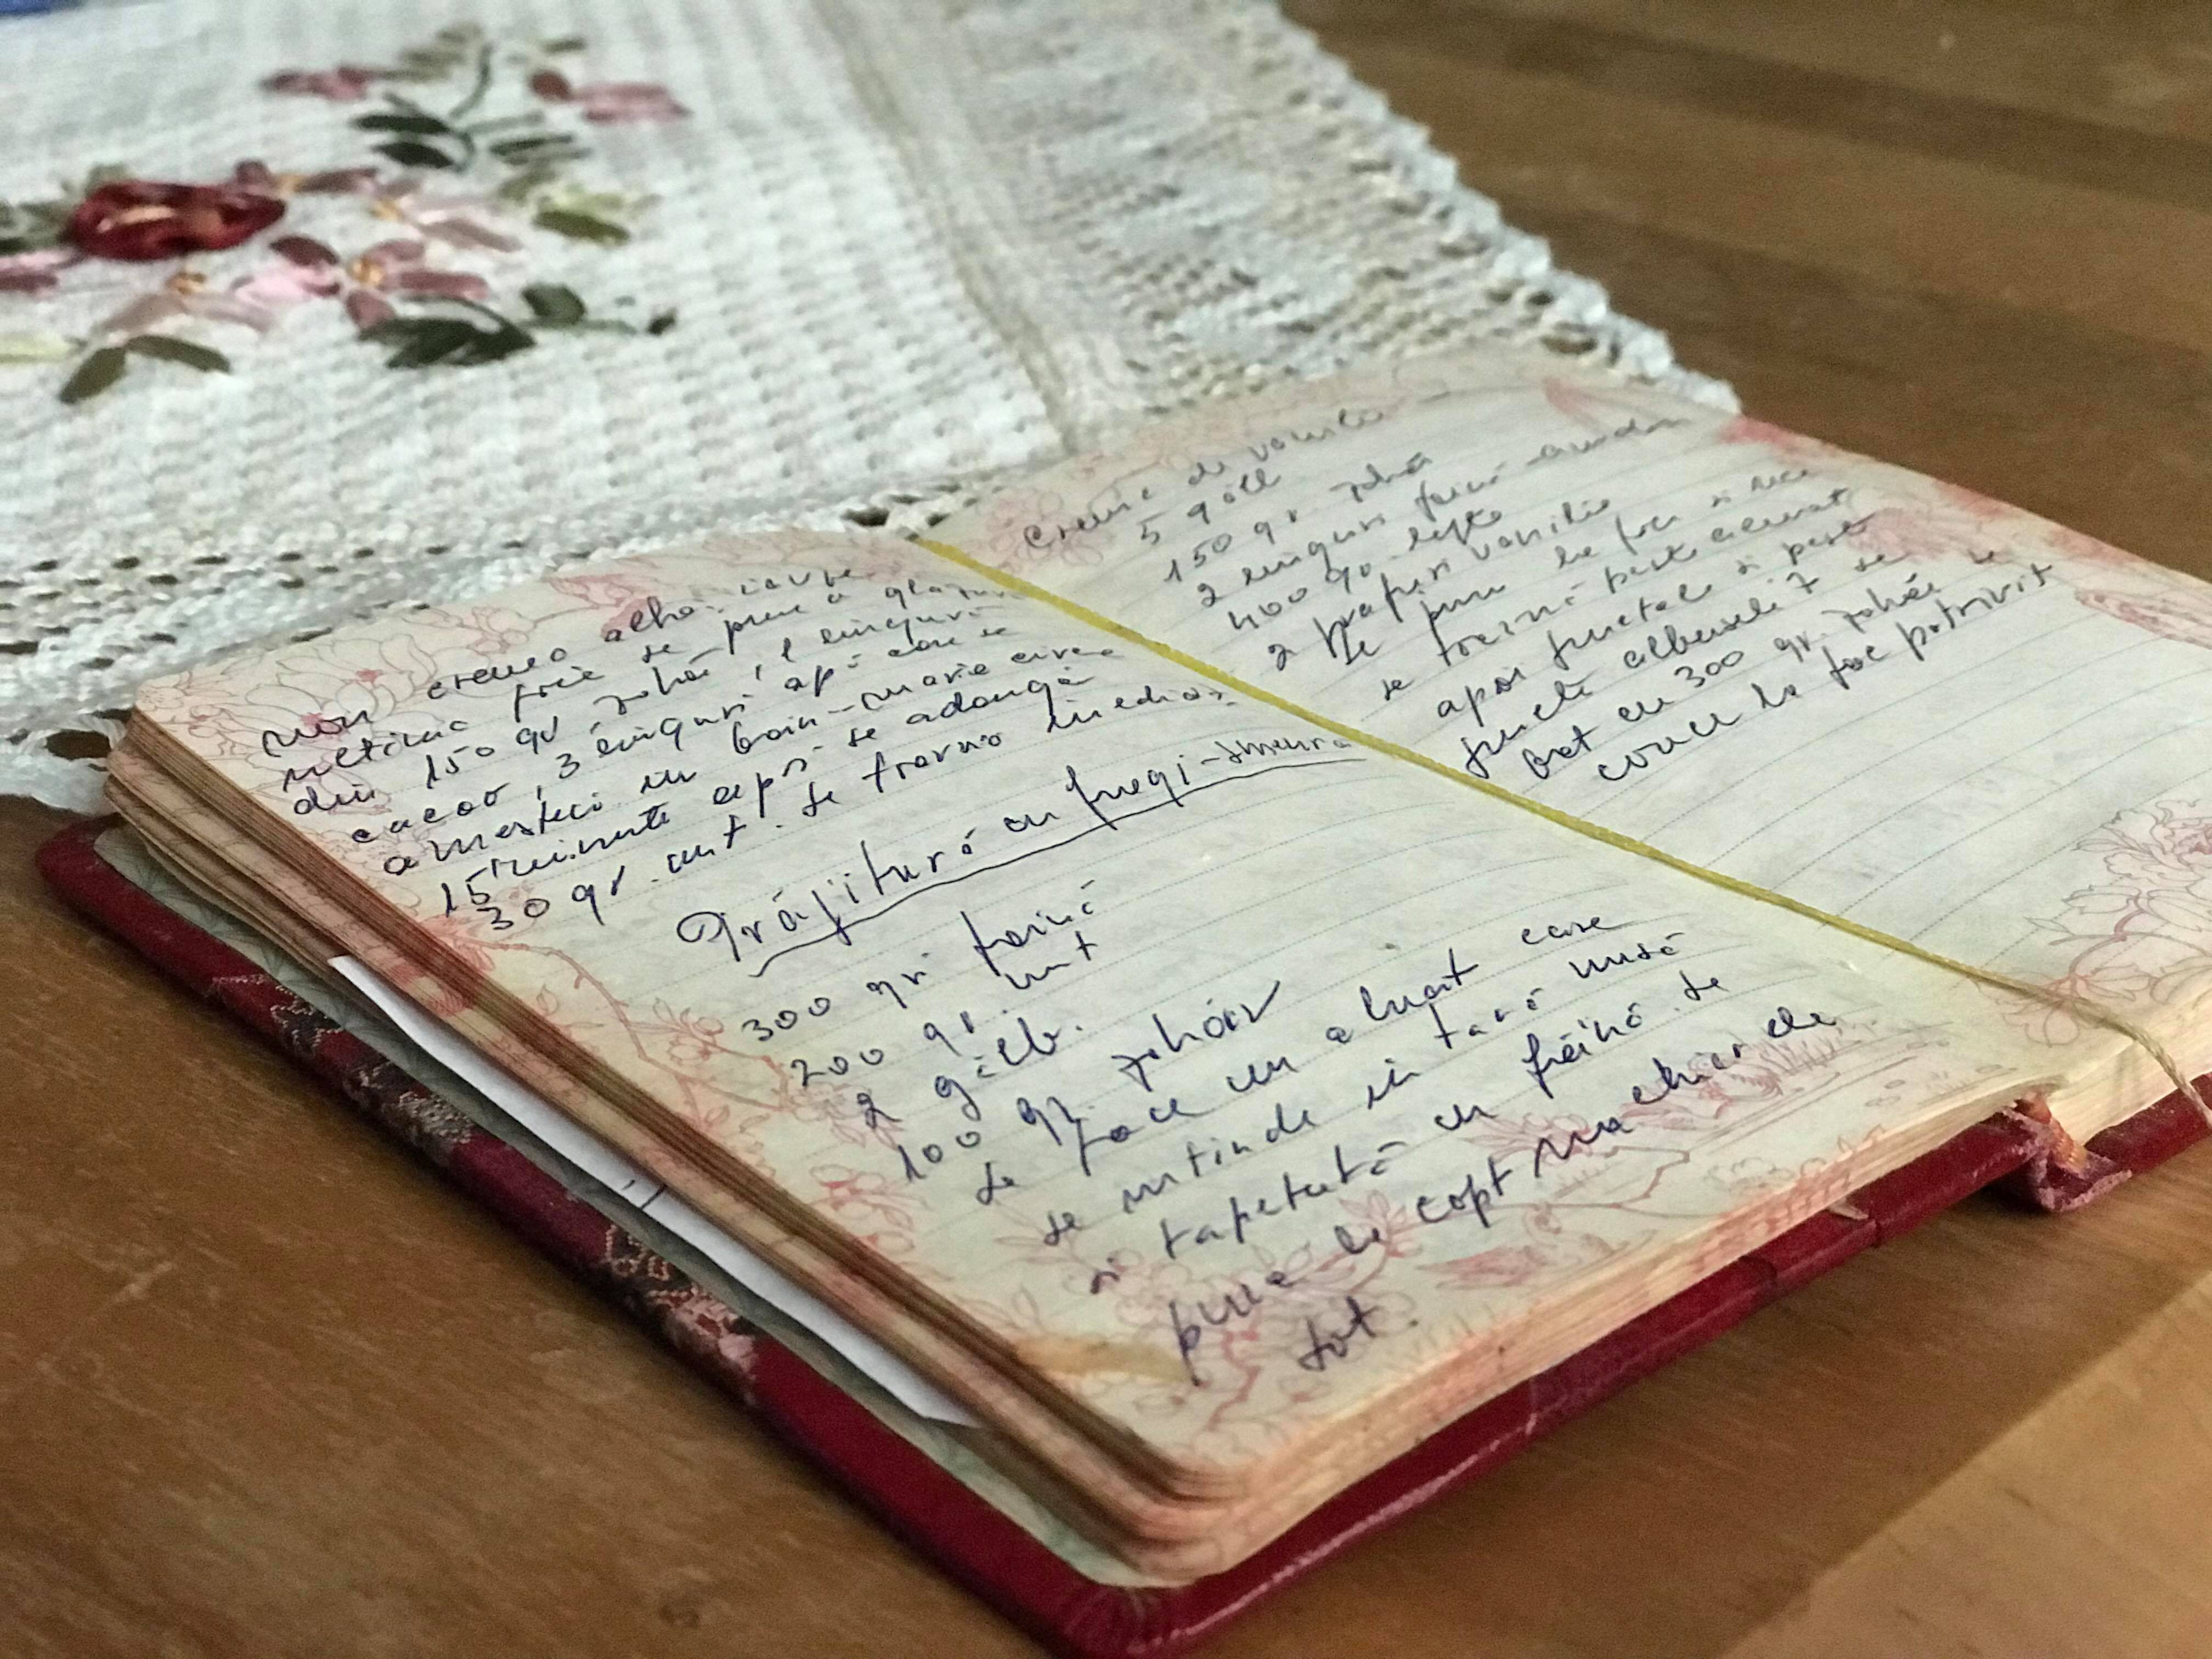 crema alba
ultima foie se pune o glazură
din 150 gr zahăr, 1 lingură
cacao, 3 linguri apă care se
amestecă in bain-marie circa
15 minute apoi se adaugă
30 gr. unt. Se toarnă
Prăjitură cu fragi-zmeură
300 gr făină
200 gr. unt
2 gălb.
100 gr. zahăr
se face un aluat care
se intinde in tavă unsă
si tapetată cu făină. Se
pune la copt
tot.
Cremă de vanilie
5 gălb
150 gr zahăr
2 linguri faină amidon
400 gr. lapte
2 prafuri vanilie
se pune la foc si rece
se toarnă peste aluat
apoi fructele si peste
fructe albusuri 7 se
bat cu 300 gr. zahăr
coace la foc potrivit